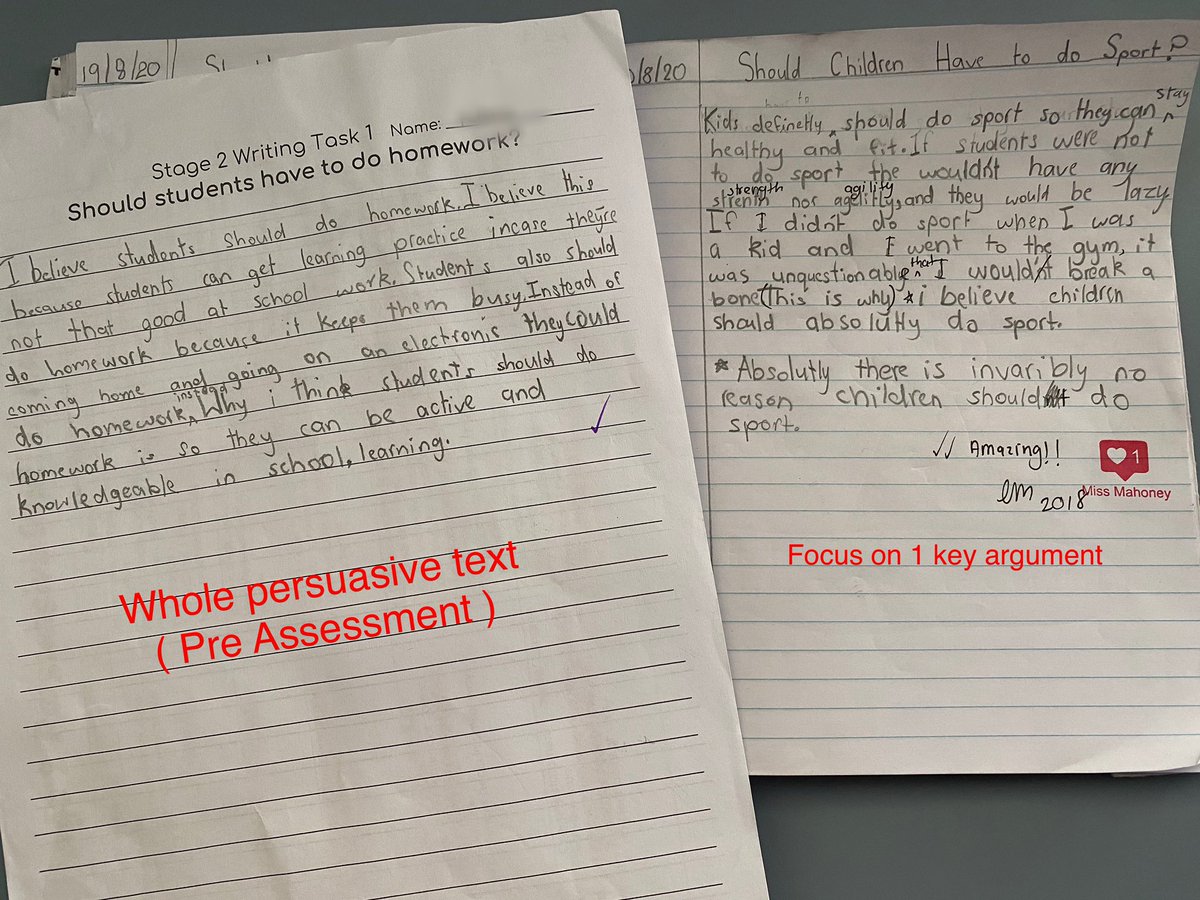 19/8/20
Stage 2 Writing Task 1 Name:
Should students have to do homework?
I believe students should do homework. I believe this
because students can get learning practice incase they're
not that good at school work. Student's also should
do homework because it keeps them busy. Instead of
coming home and going on an electronis they could
do homework, instead Why i think students should do
homework is so they can be active and
knowledgeable in school, learning.
Whole persuasive text
( Pre Assessment )
/8/20 Should Children Have to do Sport?
have to stay
Kids definetly, should do sport so they can
healthy and fit. If students were not
to do sport the wouldn't have any
strength agility
strenth nor agelitly, and they would be lazy
If I didn't do sport when I was
a kid and I went to the gym, it
was unquestionable that I wouldn't break a
bone (This is why) * i believe children
should absolutly do sport.
* Absolutly there is invaribly no
reason children should do
sport.
Amazing!!
1
2018 Miss Mahoney
Focus on 1 key argument